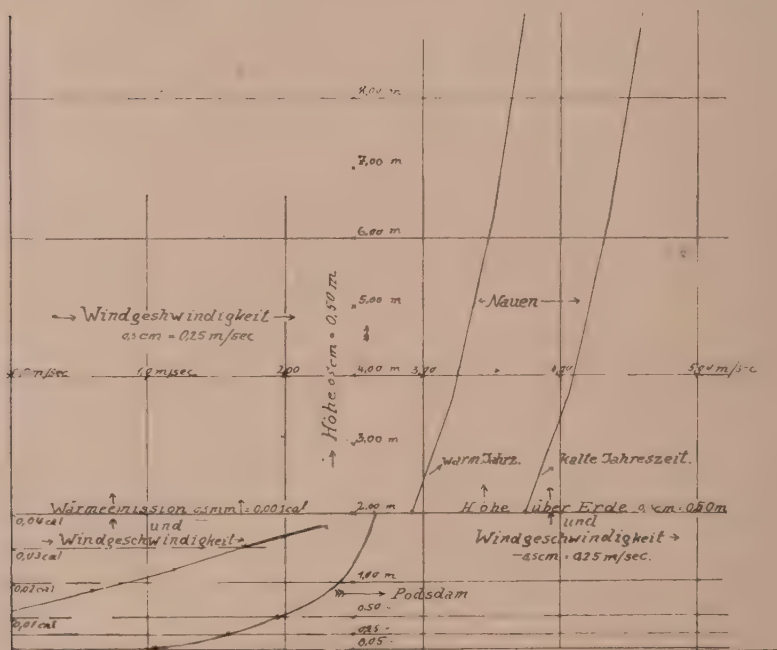 8,00 m
7,00 m
6,00 m
→ Windgeshwindigkeit →
0,5 cm = 0,25 m/sec
→ Höhe 0,5 cm = 0,50 m
5,00 m
← Nauen →
m/sec
1,0 m/sec
2,00
4,00 m
3,00
4,00
5,00 m/s
3,00 m
warm Jahrz.
kalte Jahreszeit.
Wärmeemission 0,5 mm = 0,001 cal
und
→ Windgeschwindigkeit →
2,00 m
Höhe über Erde 0,5 cm = 0,50 m
und
Windgeschwindigkeit →
0,5 cm = 0,25 m/sec.
0,04 cal
0,03 cal
0,02 cal
0,01 cal
1,00 m
→ Posdam
0,50
0,25
0,05